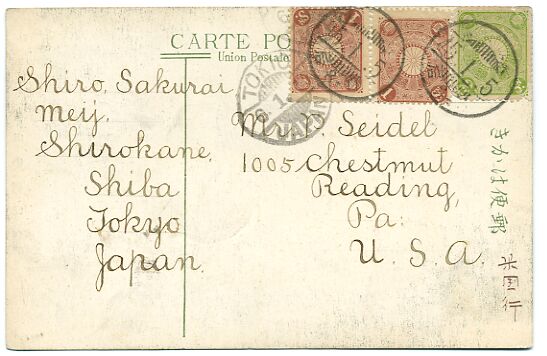 CARTE PO
Union Postale
Shiro Sakurai,
Meij.
Shirokane,
Shiba
Tokyo
Japan.
Seidel
1005 Chestmut
Reading,
Pa.
U. S. A.
きかは便郵
米国行
JAPAN